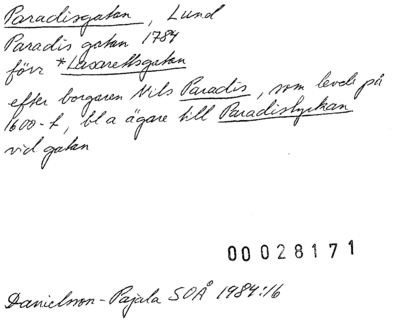 Paradisgatan, Lund
Paradis gatan 1784
förr *Lasarettsgatan
efter borgaren Nils Paradis, som levde på
1600-t, bl a ägare till Paradislyckan
vid gatan
00028171
Danielsson-Pajala SOÅ 1984:16